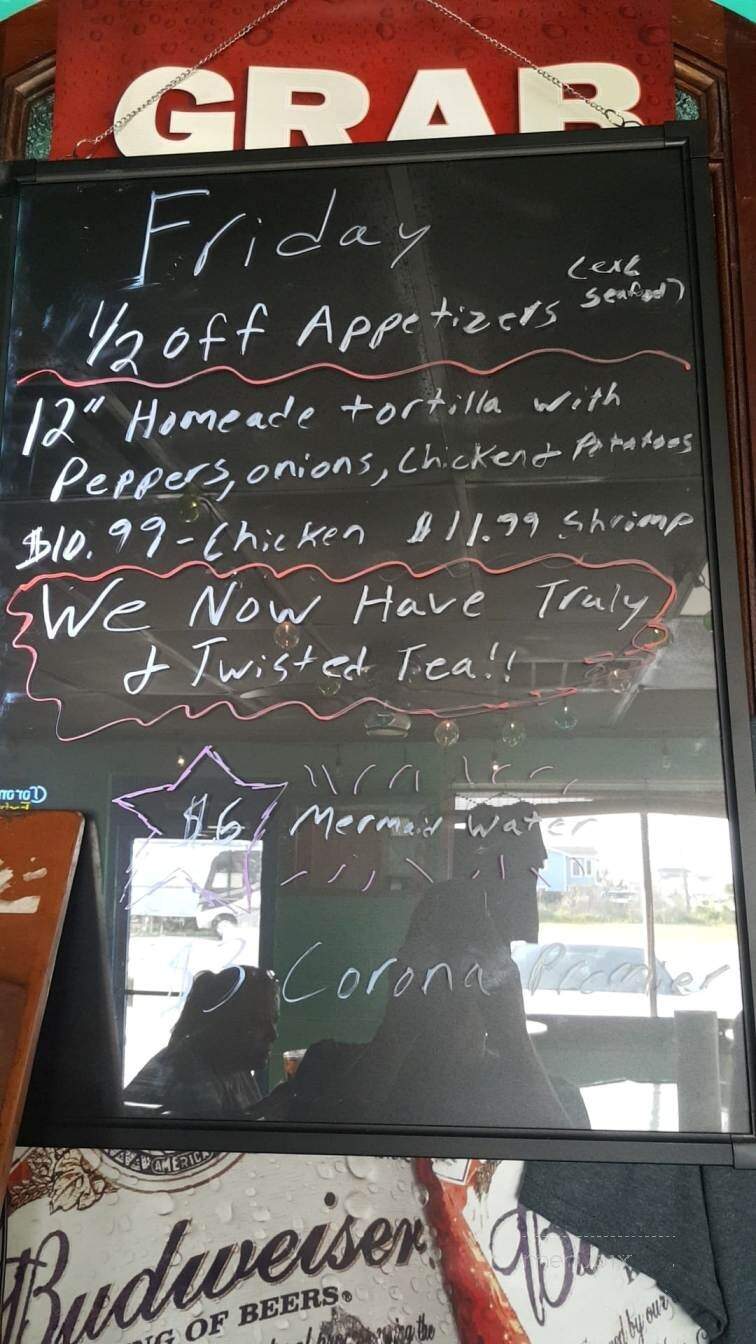 GRAB
Friday
1/2 off Appetizers (exc seafood)
12" Homeade tortilla with
Peppers, onions, Chicken & Potatoes
$10.99 - Chicken $11.99 Shrimp
We Now Have Truly
& Twisted Tea!!
$6 Mermaid Water
$3 Corona Premier
AMERIC
Budweiser
NG OF BEERS®
Bu